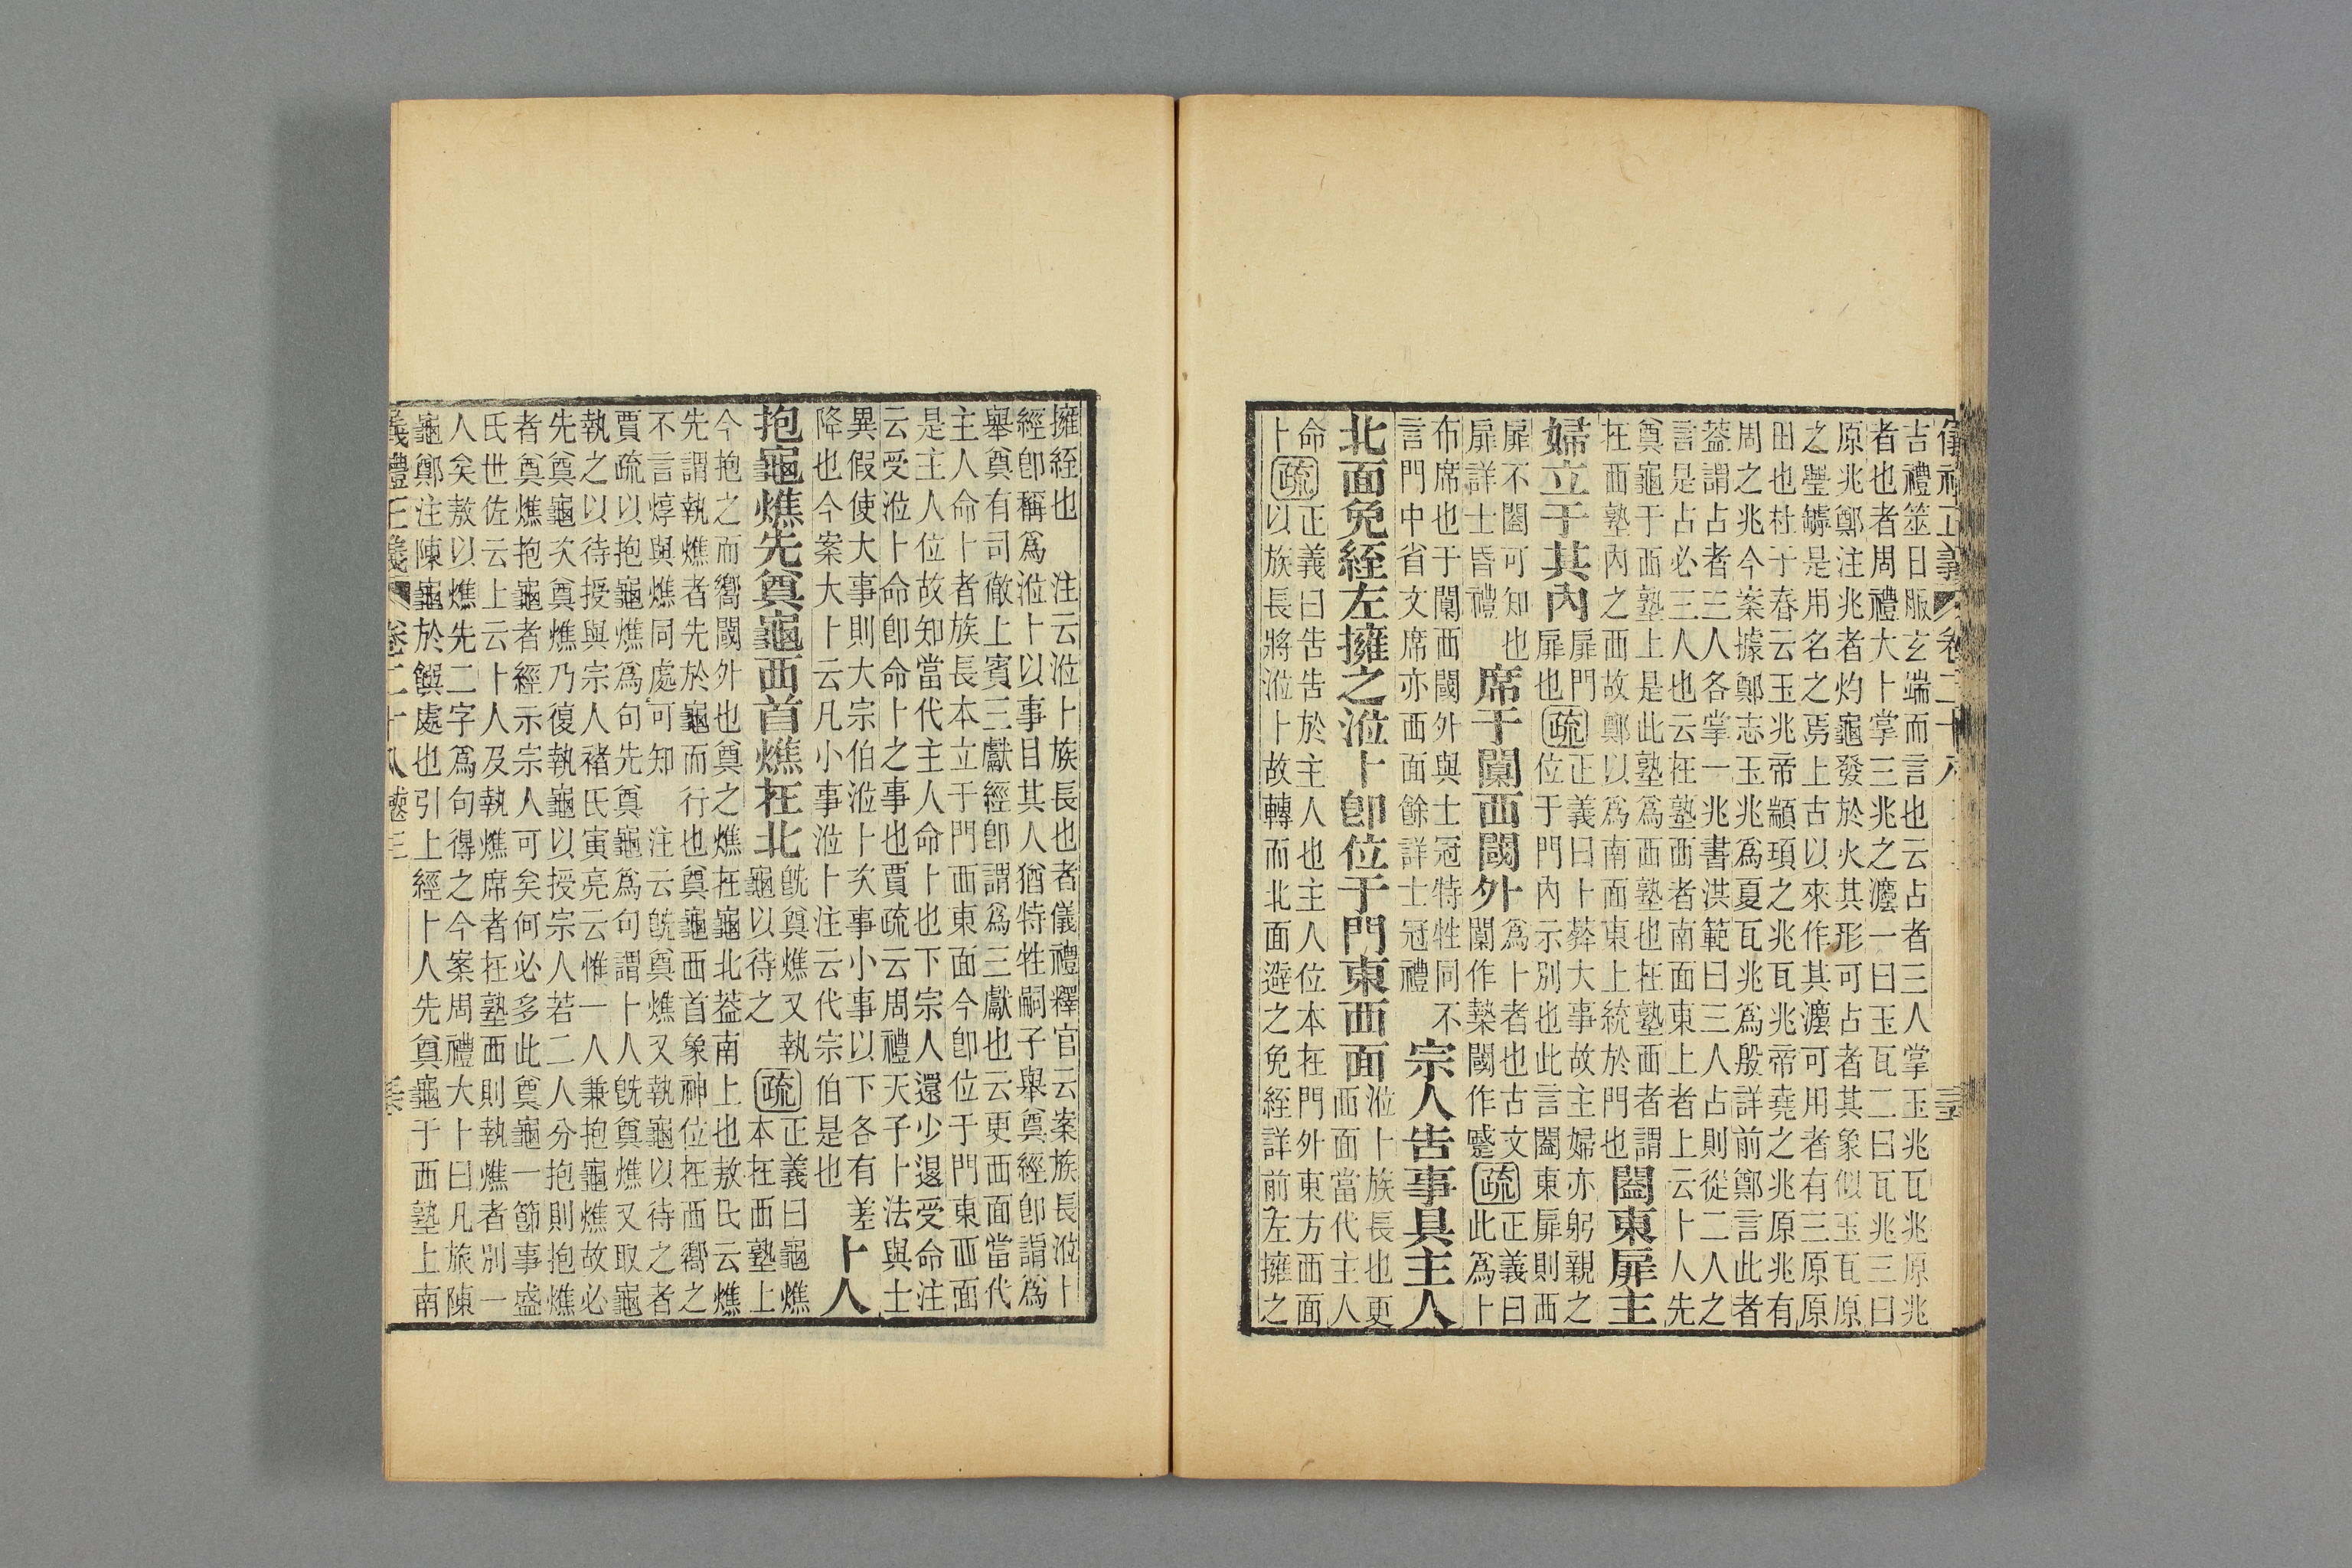 儀禮正義 卷二十八
吉禮筮日服玄端而言也云占者三人掌玉兆瓦兆原兆
者也者周禮大卜掌三兆之灋一曰玉瓦二曰瓦兆三曰
原兆鄭注兆者灼龜發於火其形可占者其象似玉瓦原
之璺罅是用名之焉上古以來作其灋可用者有三原原
田也杜子春云玉兆帝顓頊之兆瓦兆帝堯之兆原兆有
周之兆今案據鄭志玉兆爲夏瓦兆爲殷詳前鄭言此者
葢謂占者三人各掌一兆書洪範曰三人占則從二人之
言是占必三人也云在塾西者南面東上者上云卜人先
奠龜于西塾上是此塾爲西塾也在塾西者謂
在西塾內之西故鄭以爲南面東上統於門也
闔東扉主
婦立于其內
扉門
扉也
疏
正義曰卜葬大事故主婦亦躬親之
位于門內示別也此言闔東扉則西
扉不闔可知也
扉詳士昏禮
席于闑西閾外
爲卜者也古文
闑作槷閾作蹙
疏
正義曰
此爲卜
布席也于闑西閾外與士冠特牲同不
言門中省文席亦西面餘詳士冠禮
宗人告事具主人
北面免絰左擁之涖卜卽位于門東西面
涖卜族長也更
西面當代主人
命
卜
疏
正義曰告告於主人也主人位本在門外東方西面
以族長將涖卜故轉而北面避之免絰詳前左擁之
擁絰也 注云涖卜族長也者儀禮釋官云案族長涖卜
經卽稱爲涖卜以事目其人猶特牲嗣子舉奠經卽謂爲
舉奠有司徹上賓三獻經卽謂爲三獻也云更西面當代
主人命卜者族長本立于門西東面今卽位于門東西面
是主人位故知當代主人命卜也下宗人還少退受命注
云受涖卜命卽命卜之事也賈疏云周禮天子卜法與士
異假使大事則大宗伯涖卜次事小事以下各有差
降也今案大卜云凡小事涖卜注云代宗伯是也
卜人
抱龜燋先奠龜西首燋在北
旣奠燋又執
龜以待之
疏
正義曰龜燋
本在西塾上
今抱之而嚮閾外也奠之燋在龜北葢南上也敖氏云燋
先謂執燋者先於龜而行也奠龜西首象神位在西嚮之
不言焞與燋同處可知 注云旣奠燋又執龜以待之者
賈疏以抱龜燋爲句先奠龜爲句謂卜人旣奠燋又取龜
執之以待授與宗人褚氏寅亮云惟一人兼抱龜燋故必
先奠龜次奠燋乃復執龜以授宗人若二人分抱則抱燋
者奠燋抱龜者經示宗人可矣何必多此奠龜一節事盛
氏世佐云上云卜人及執燋席者在塾西則執燋者別一
人矣敖以燋先二字爲句得之今案周禮大卜曰凡旅陳
龜鄭注陳龜於饌處也引上經卜人先奠龜于西塾上南
義禮正義 卷二十八